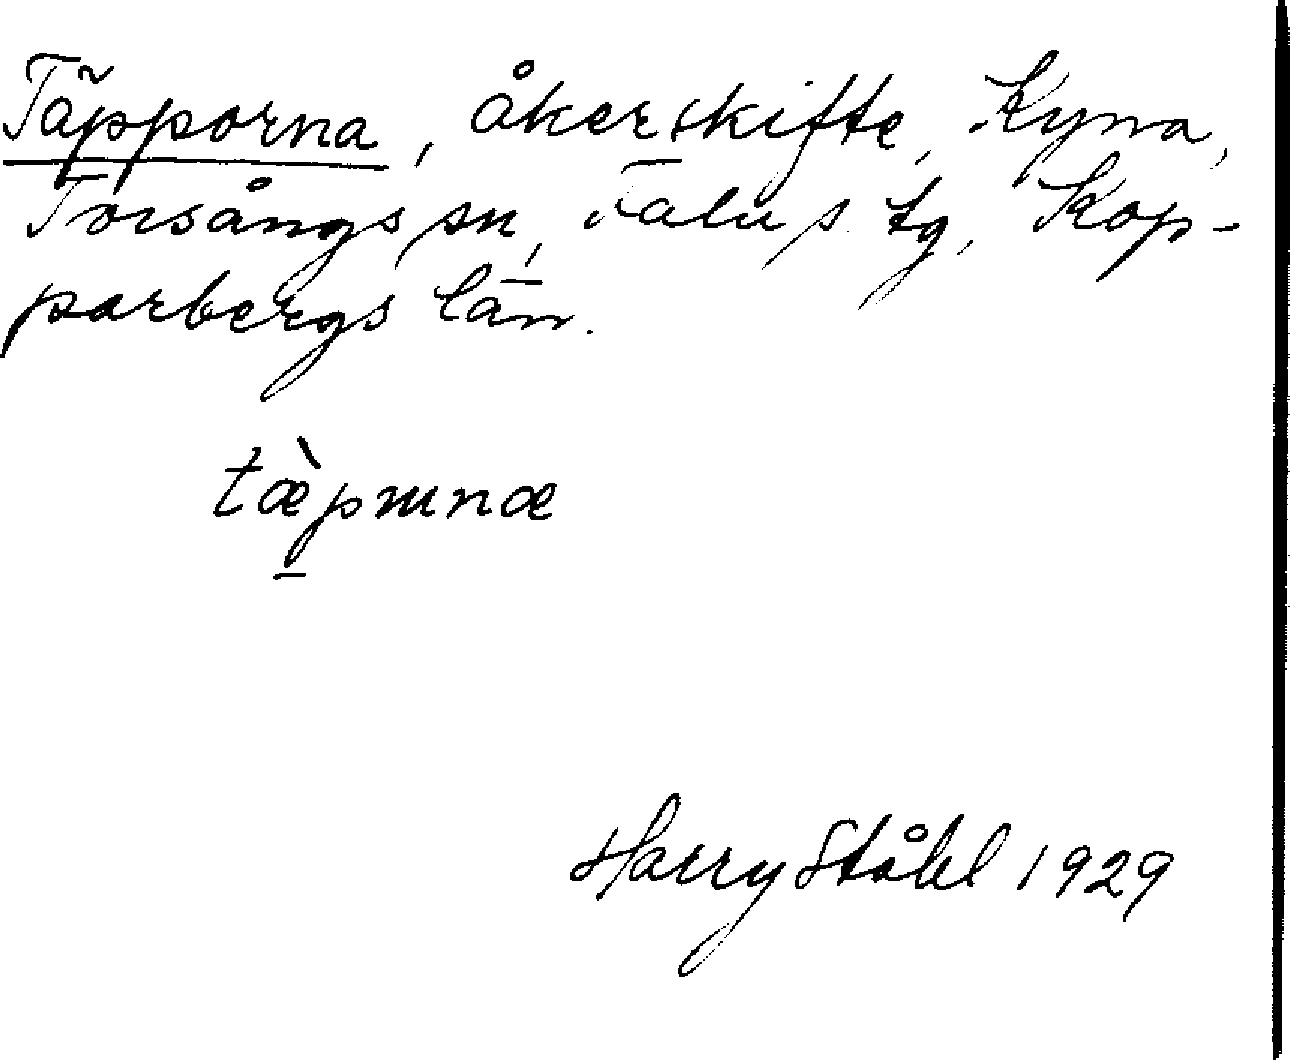 Täpporna, åkerskifte, Kyna,
Torsångs sn, Falu s. tg, Kop-
parbergs län.
tæ̀pmnæ
Harry Ståhl 1929